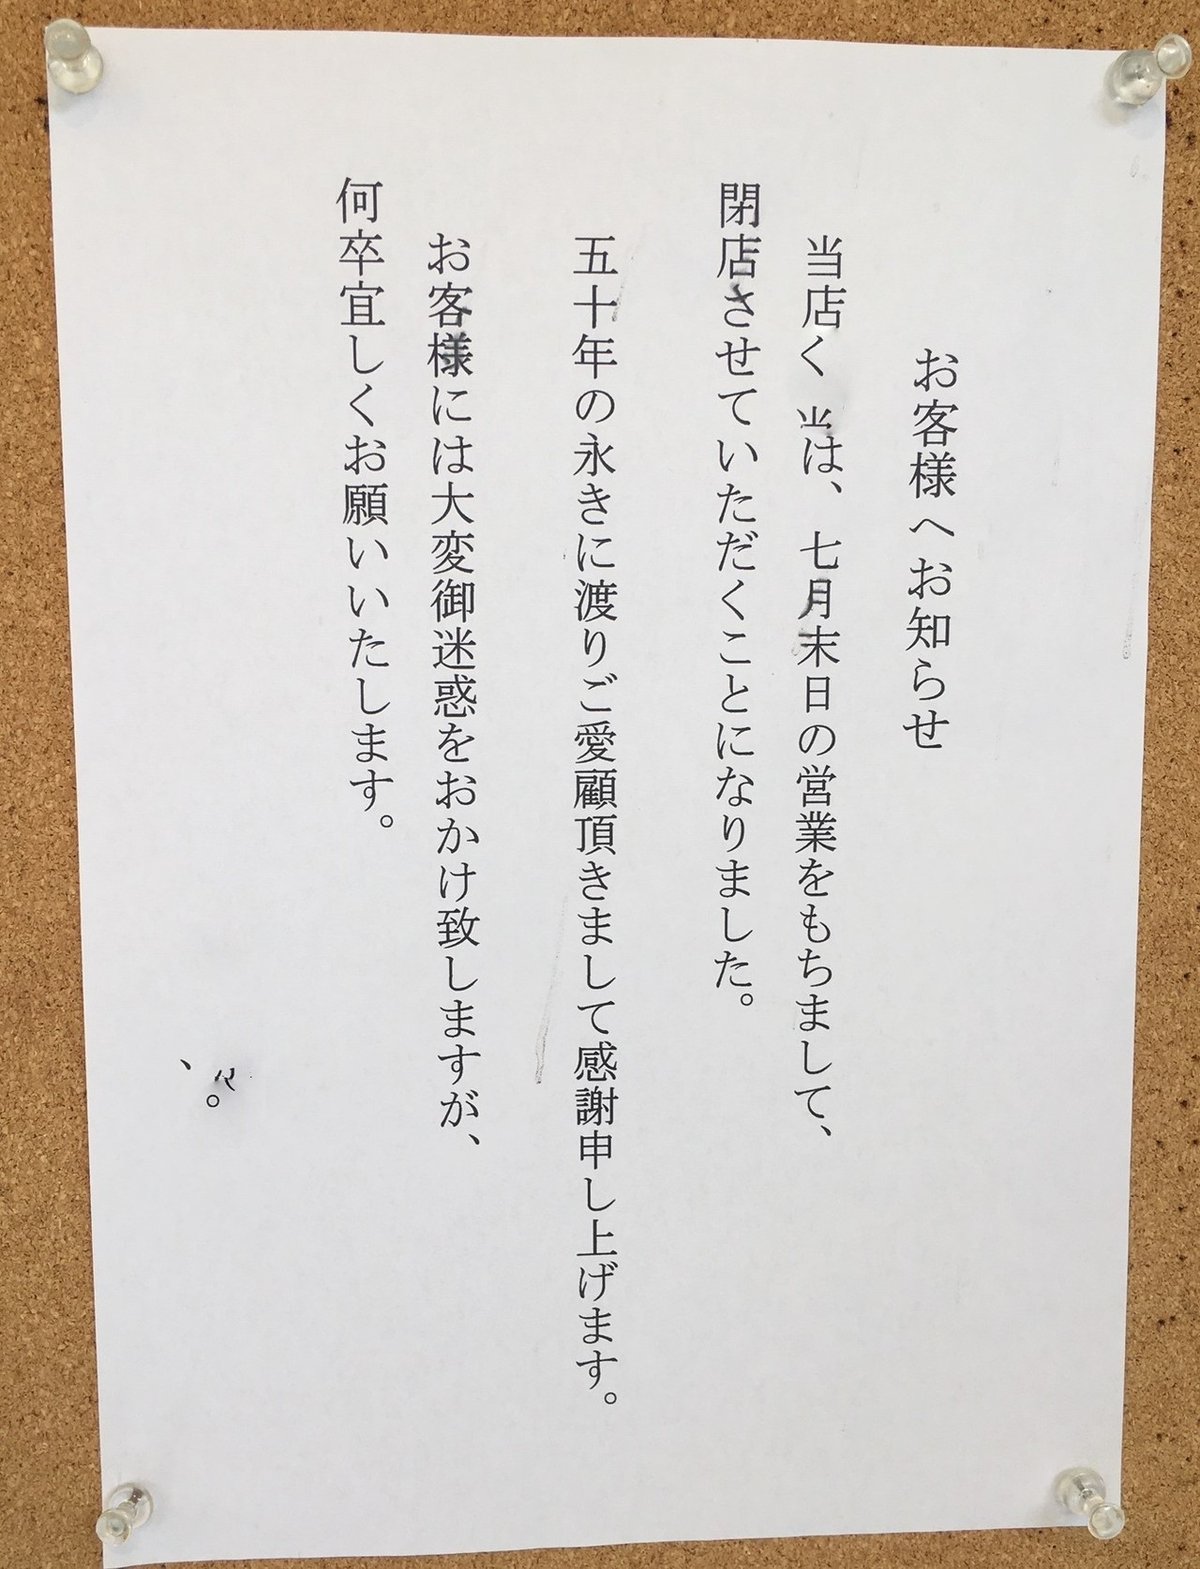 お客様へお知らせ
当店く は、七月末日の営業をもちまして、
閉店させていただくことになりました。
五十年の永きに渡りご愛顧頂きまして感謝申し上げます。
お客様には大変御迷惑をおかけ致しますが、
何卒宜しくお願いいたします。